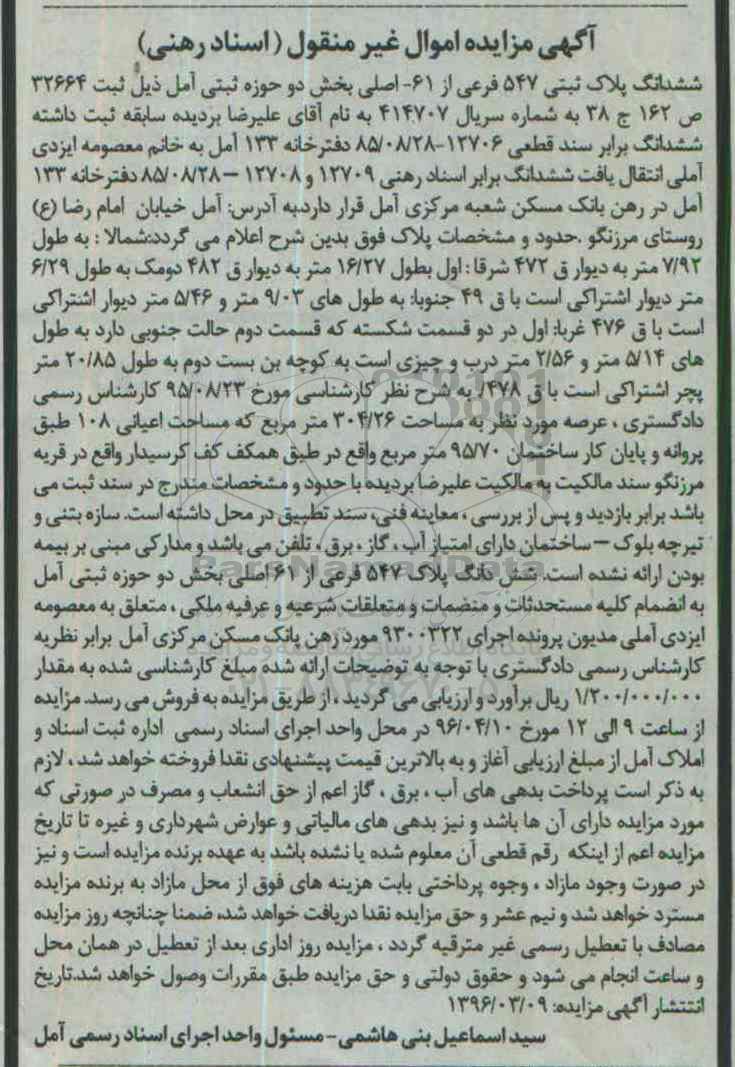 آگهی مزایده اموال غیر منقول (اسناد رهنی)
ششدانگ پلاک ثبتی ۵۴۷ فرعی از ۶۱- اصلی بخش دو حوزه ثبتی آمل ذیل ثبت ۳۲۶۶۴
ص ۱۶۲ ج ۳۸ به شماره سریال ۴۱۴۷۰۷ به نام آقای علیرضا بردیده سابقه ثبت داشته
ششدانگ برابر سند قطعی ۱۲۷۰۶-۸۵/۰۸/۲۸ دفترخانه ۱۳۳ آمل به خانم معصومه ایزدی
آملی انتقال یافت ششدانگ برابر اسناد رهنی ۱۲۷۰۹ و ۱۲۷۰۸ –۸۵/۰۸/۲۸ دفترخانه ۱۳۳
آمل در رهن بانک مسکن شعبه مرکزی آمل قرار دارد.به آدرس: آمل خیابان امام رضا (ع)
روستای مرزنگو .حدود و مشخصات پلاک فوق بدین شرح اعلام می گردد:شمالا : به طول
۷/۹۲ متر به دیوار ق ۴۷۲ شرقا : اول بطول ۱۶/۲۷ متر به دیوار ق ۴۸۲ دومک به طول ۶/۲۹
متر دیوار اشتراکی است با ق ۴۹ جنوبا: به طول های ۹/۰۳ متر و ۵/۴۶ متر دیوار اشتراکی
است با ق ۴۷۶ غربا: اول در دو قسمت شکسته که قسمت دوم حالت جنوبی دارد به طول
های ۵/۱۴ متر و ۲/۵۶ متر درب و چیزی است به کوچه بن بست دوم به طول ۲۰/۸۵ متر
پچر اشتراکی است با ق ۴۷۸. به شرح نظر کارشناسی مورخ ۹۵/۰۸/۲۳ کارشناس رسمی
دادگستری ، عرصه مورد نظر به مساحت ۳۰۴/۲۶ متر مربع که مساحت اعیانی ۱۰۸ طبق
پروانه و پایان کار ساختمان ۹۵/۷۰ متر مربع واقع در طبق همکف کف کرسیدار واقع در قریه
مرزنگو سند مالکیت به مالکیت علیرضا بردیده با حدود و مشخصات مندرج در سند ثبت می
باشد برابر بازدید و پس از بررسی ، معاینه فنی، سند تطبیق در محل داشته است. سازه بتنی و
تیرچه بلوک – ساختمان دارای امتیاز آب ، گاز ، برق ، تلفن می باشد و مدارکی مبنی بر بیمه
بودن ارائه نشده است. شش دانگ پلاک ۵۴۷ فرعی از ۶۱ اصلی بخش دو حوزه ثبتی آمل
به انضمام کلیه مستحدثات و منضمات و متعلقات شرعیه و عرفیه ملکی ، متعلق به معصومه
ایزدی آملی مدیون پرونده اجرای ۹۳۰۰۳۲۲ مورد رهن بانک مسکن مرکزی آمل برابر نظریه
کارشناس رسمی دادگستری با توجه به توضیحات ارائه شده مبلغ کارشناسی شده به مقدار
۱/۲۰۰/۰۰۰/۰۰۰ ریال برآورد و ارزیابی می گردید ، از طریق مزایده به فروش می رسد. مزایده
از ساعت ۹ الی ۱۲ مورخ ۹۶/۰۴/۱۰ در محل واحد اجرای اسناد رسمی اداره ثبت اسناد و
املاک آمل از مبلغ ارزیابی آغاز و به بالاترین قیمت پیشنهادی نقدا فروخته خواهد شد ، لازم
به ذکر است پرداخت بدهی های آب ، برق ، گاز اعم از حق انشعاب و مصرف در صورتی که
مورد مزایده دارای آن ها باشد و نیز بدهی های مالیاتی و عوارض شهرداری و غیره تا تاریخ
مزایده اعم از اینکه رقم قطعی آن معلوم شده یا نشده باشد به عهده برنده مزایده است و نیز
در صورت وجود مازاد ، وجوه پرداختی بابت هزینه های فوق از محل مازاد به برنده مزایده
مسترد خواهد شد و نیم عشر و حق مزایده نقدا دریافت خواهد شد، ضمنا چنانچه روز مزایده
مصادف با تعطیل رسمی غیر مترقیه گردد ، مزایده روز اداری بعد از تعطیل در همان محل
و ساعت انجام می شود و حقوق دولتی و حق مزایده طبق مقررات وصول خواهد شد.تاریخ
انتتشار آگهی مزایده: ۱۳۹۶/۰۳/۰۹
سید اسماعیل بنی هاشمی-مسئول واحد اجرای اسناد رسمی آمل
ParsNamadData